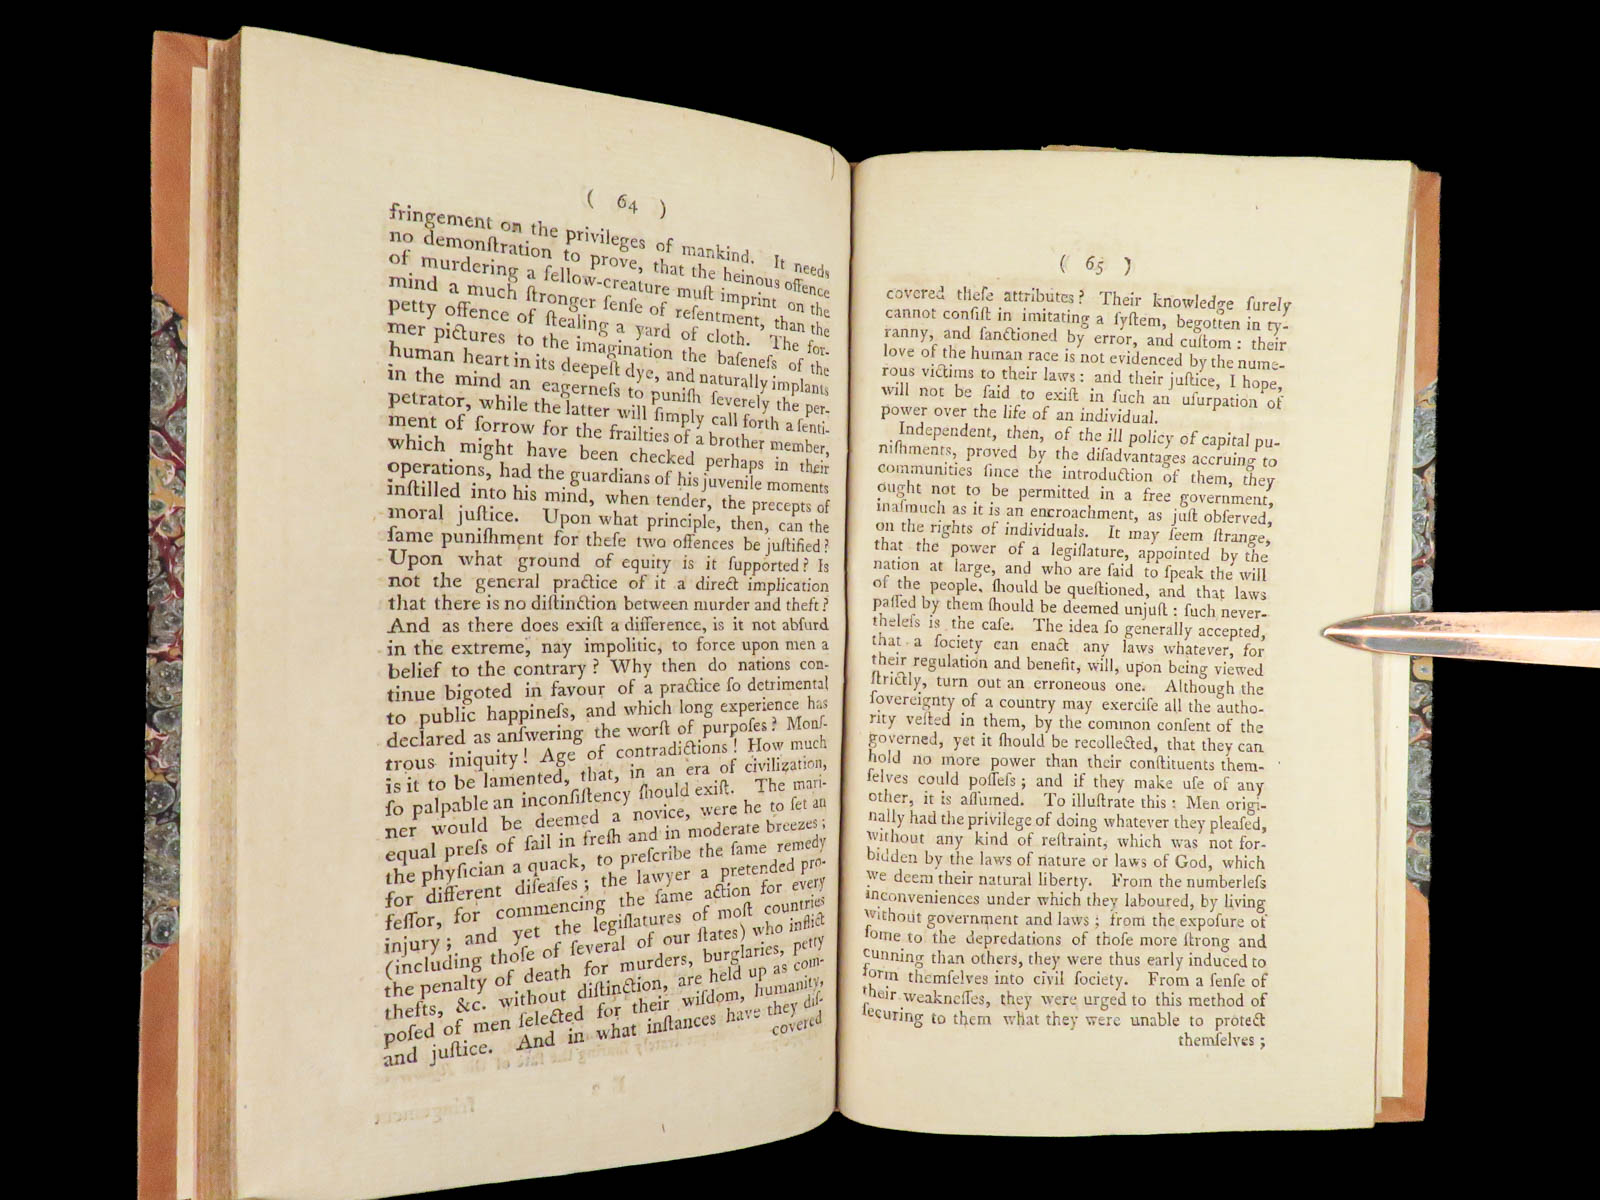 ( 64 )
fringement on the privileges of mankind. It needs
no demonſtration to prove, that the heinous offence
of murdering a fellow-creature muſt imprint on the
mind a much ſtronger ſenſe of reſentment, than the
petty offence of ſtealing a yard of cloth. The for-
mer pictures to the imagination the baſeneſs of the
human heart in its deepeſt dye, and naturally implants
in the mind an eagerneſs to puniſh ſeverely the per-
petrator, while the latter will ſimply call forth a ſenti-
ment of ſorrow for the frailties of a brother member,
which might have been checked perhaps in their
operations, had the guardians of his juvenile moments
inſtilled into his mind, when tender, the precepts of
moral juſtice. Upon what principle, then, can the
ſame puniſhment for theſe two offences be juſtified?
Upon what ground of equity is it ſupported? Is
not the general practice of it a direct implication
that there is no diſtinction between murder and theft?
And as there does exiſt a difference, is it not abſurd
in the extreme, nay impolitic, to force upon men a
belief to the contrary? Why then do nations con-
tinue bigoted in favour of a practice ſo detrimental
to public happineſs, and which long experience has
declared as anſwering the worſt of purpoſes? Monſ-
trous iniquity! Age of contradictions! How much
is it to be lamented, that, in an era of civilization,
ſo palpable an inconſiſtency ſhould exiſt. The mari-
ner would be deemed a novice, were he to ſet an
equal preſs of ſail in freſh and in moderate breezes;
the phyſician a quack, to preſcribe the ſame remedy
for different diſeaſes; the lawyer a pretended pro-
feſſor, for commencing the ſame action for every
injury; and yet the legiſlatures of moſt countries
(including thoſe of ſeveral of our ſtates) who inflict
the penalty of death for murders, burglaries, petty
thefts, &c. without diſtinction, are held up as com-
poſed of men ſelected for their wiſdom, humanity,
and juſtice. And in what inſtances have they diſ-
covered
( 65 )
covered theſe attributes? Their knowledge ſurely
cannot conſiſt in imitating a ſyſtem, begotten in ty-
ranny, and ſanctioned by error, and cuſtom: their
love of the human race is not evidenced by the nume-
rous victims to their laws: and their juſtice, I hope,
will not be ſaid to exiſt in ſuch an uſurpation of
power over the life of an individual.
Independent, then, of the ill policy of capital pu-
niſhments, proved by the diſadvantages accruing to
communities ſince the introduction of them, they
ought not to be permitted in a free government,
inaſmuch as it is an encroachment, as juſt obſerved,
on the rights of individuals. It may ſeem ſtrange,
that the power of a legiſlature, appointed by the
nation at large, and who are ſaid to ſpeak the will
of the people, ſhould be queſtioned, and that laws
paſſed by them ſhould be deemed unjuſt: ſuch never-
theleſs is the caſe. The idea ſo generally accepted,
that a ſociety can enact any laws whatever, for
their regulation and benefit, will, upon being viewed
ſtrictly, turn out an erroneous one. Although the
ſovereignty of a country may exerciſe all the autho-
rity veſted in them, by the common conſent of the
governed, yet it ſhould be recollected, that they can
hold no more power than their conſtituents them-
ſelves could poſſeſs; and if they make uſe of any
other, it is aſſumed. To illuſtrate this: Men origi-
nally had the privilege of doing whatever they pleaſed,
without any kind of reſtraint, which was not for-
bidden by the laws of nature or laws of God, which
we deem their natural liberty. From the numberleſs
inconveniences under which they laboured, by living
without government and laws; from the expoſure of
ſome to the depredations of thoſe more ſtrong and
cunning than others, they were thus early induced to
form themſelves into civil ſociety. From a ſenſe of
their weakneſſes, they were urged to this method of
ſecuring to them what they were unable to protect
themſelves;